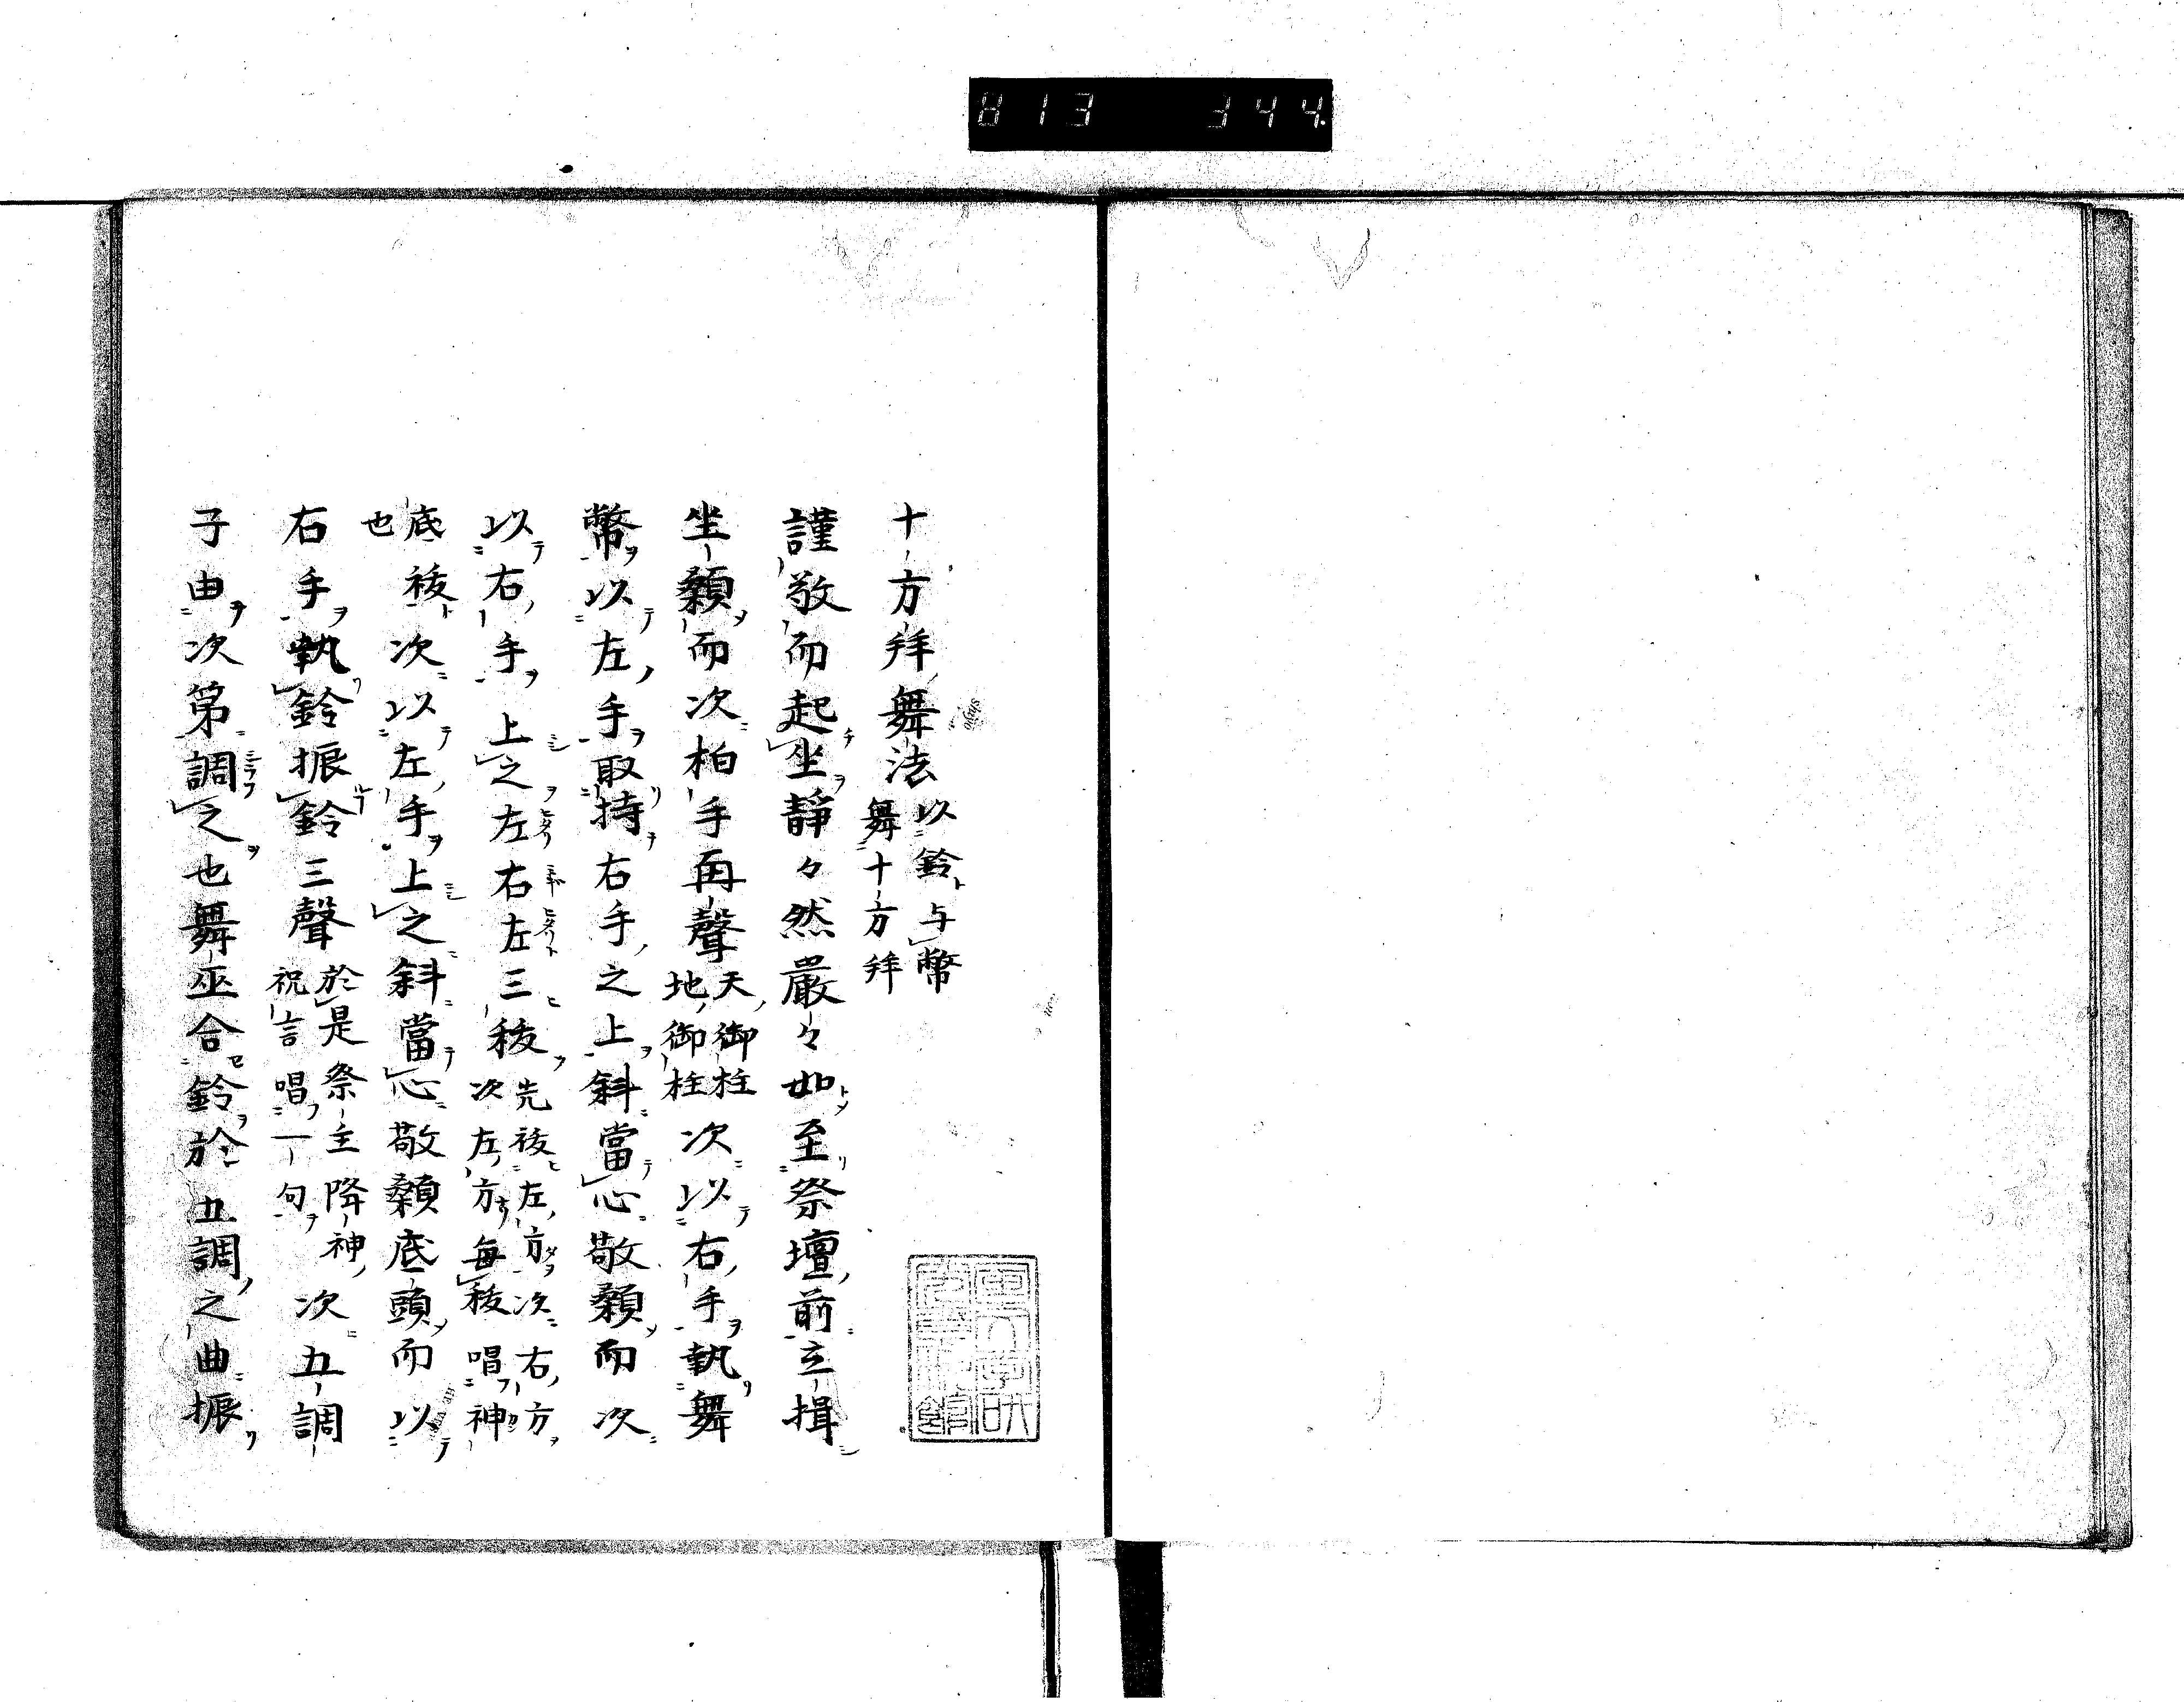 813 344
十方拜舞法 以鈴与幣 舞十方拜
謹敬而起坐靜々然嚴々如至祭壇前立揖
坐顙而次柏手再聲 天御柱 地御柱 次以右手執舞
幣以左手取持右手之上斜當心敬顙而次
以右手上之左右左三祓 先祓左方次右方 次左方每祓唱神
底祓 也 次以左手上之斜當心敬顙底頭而以
右手執鈴振鈴三聲 於是祭主降神 祝言唱一句 次五調
子由次第調之也舞巫合鈴於五調之曲振